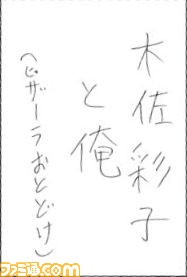 木佐彩子
と俺
(ピザーラおとどけ)
ファミ通.com